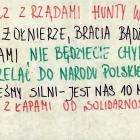 CZ Z RZĄDAMI HUNTY W
ŻOŁNIERZE, BRACIA BĄD
AMI, NIE BĘDZIECIE CHY
RZELAĆ DO NARODU POLSKIE
EŚMY SILNI - JEST NAS 10 M
Z ŁAPAMI OD „SOLIDARNOŚ